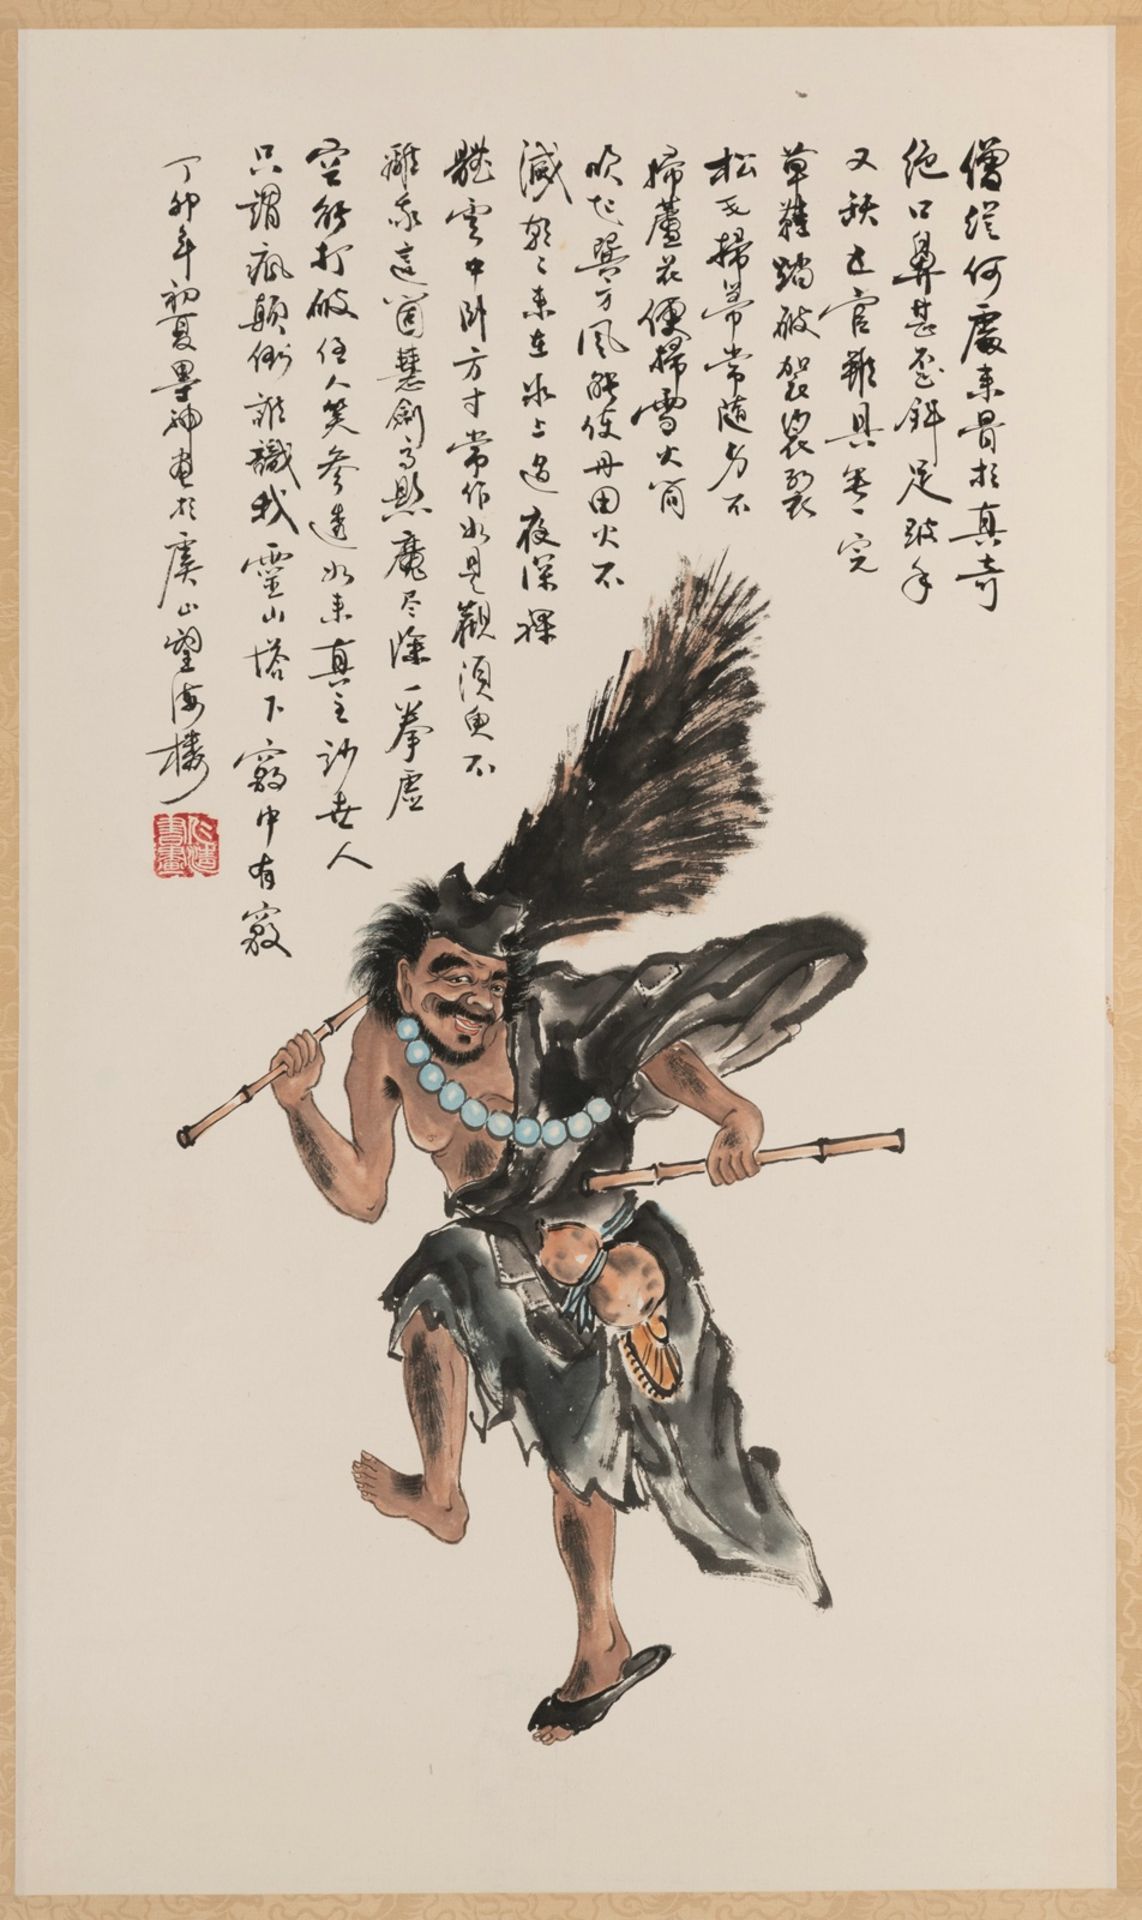 僧從何處來骨相真奇
絕口鼻甚歪斜足跛手
又缺五官難具無一完
草鞋踏破袈裟裂
松毛掃帚常隨身不
掃蘆花便掃雪火筒
吹起巽方風能使丹田火不
滅朝朝東在水上過夜深裸
體雪中卧方寸常作如是觀須臾不
離我這箇慧劍高懸魔盡除一拳虛
空能打破任人笑參透如來真主訣世人
只謂瘋顛倒誰識我靈山塔下竅中有竅
丁卯年初夏墨神畫於虞山望海樓
書畫